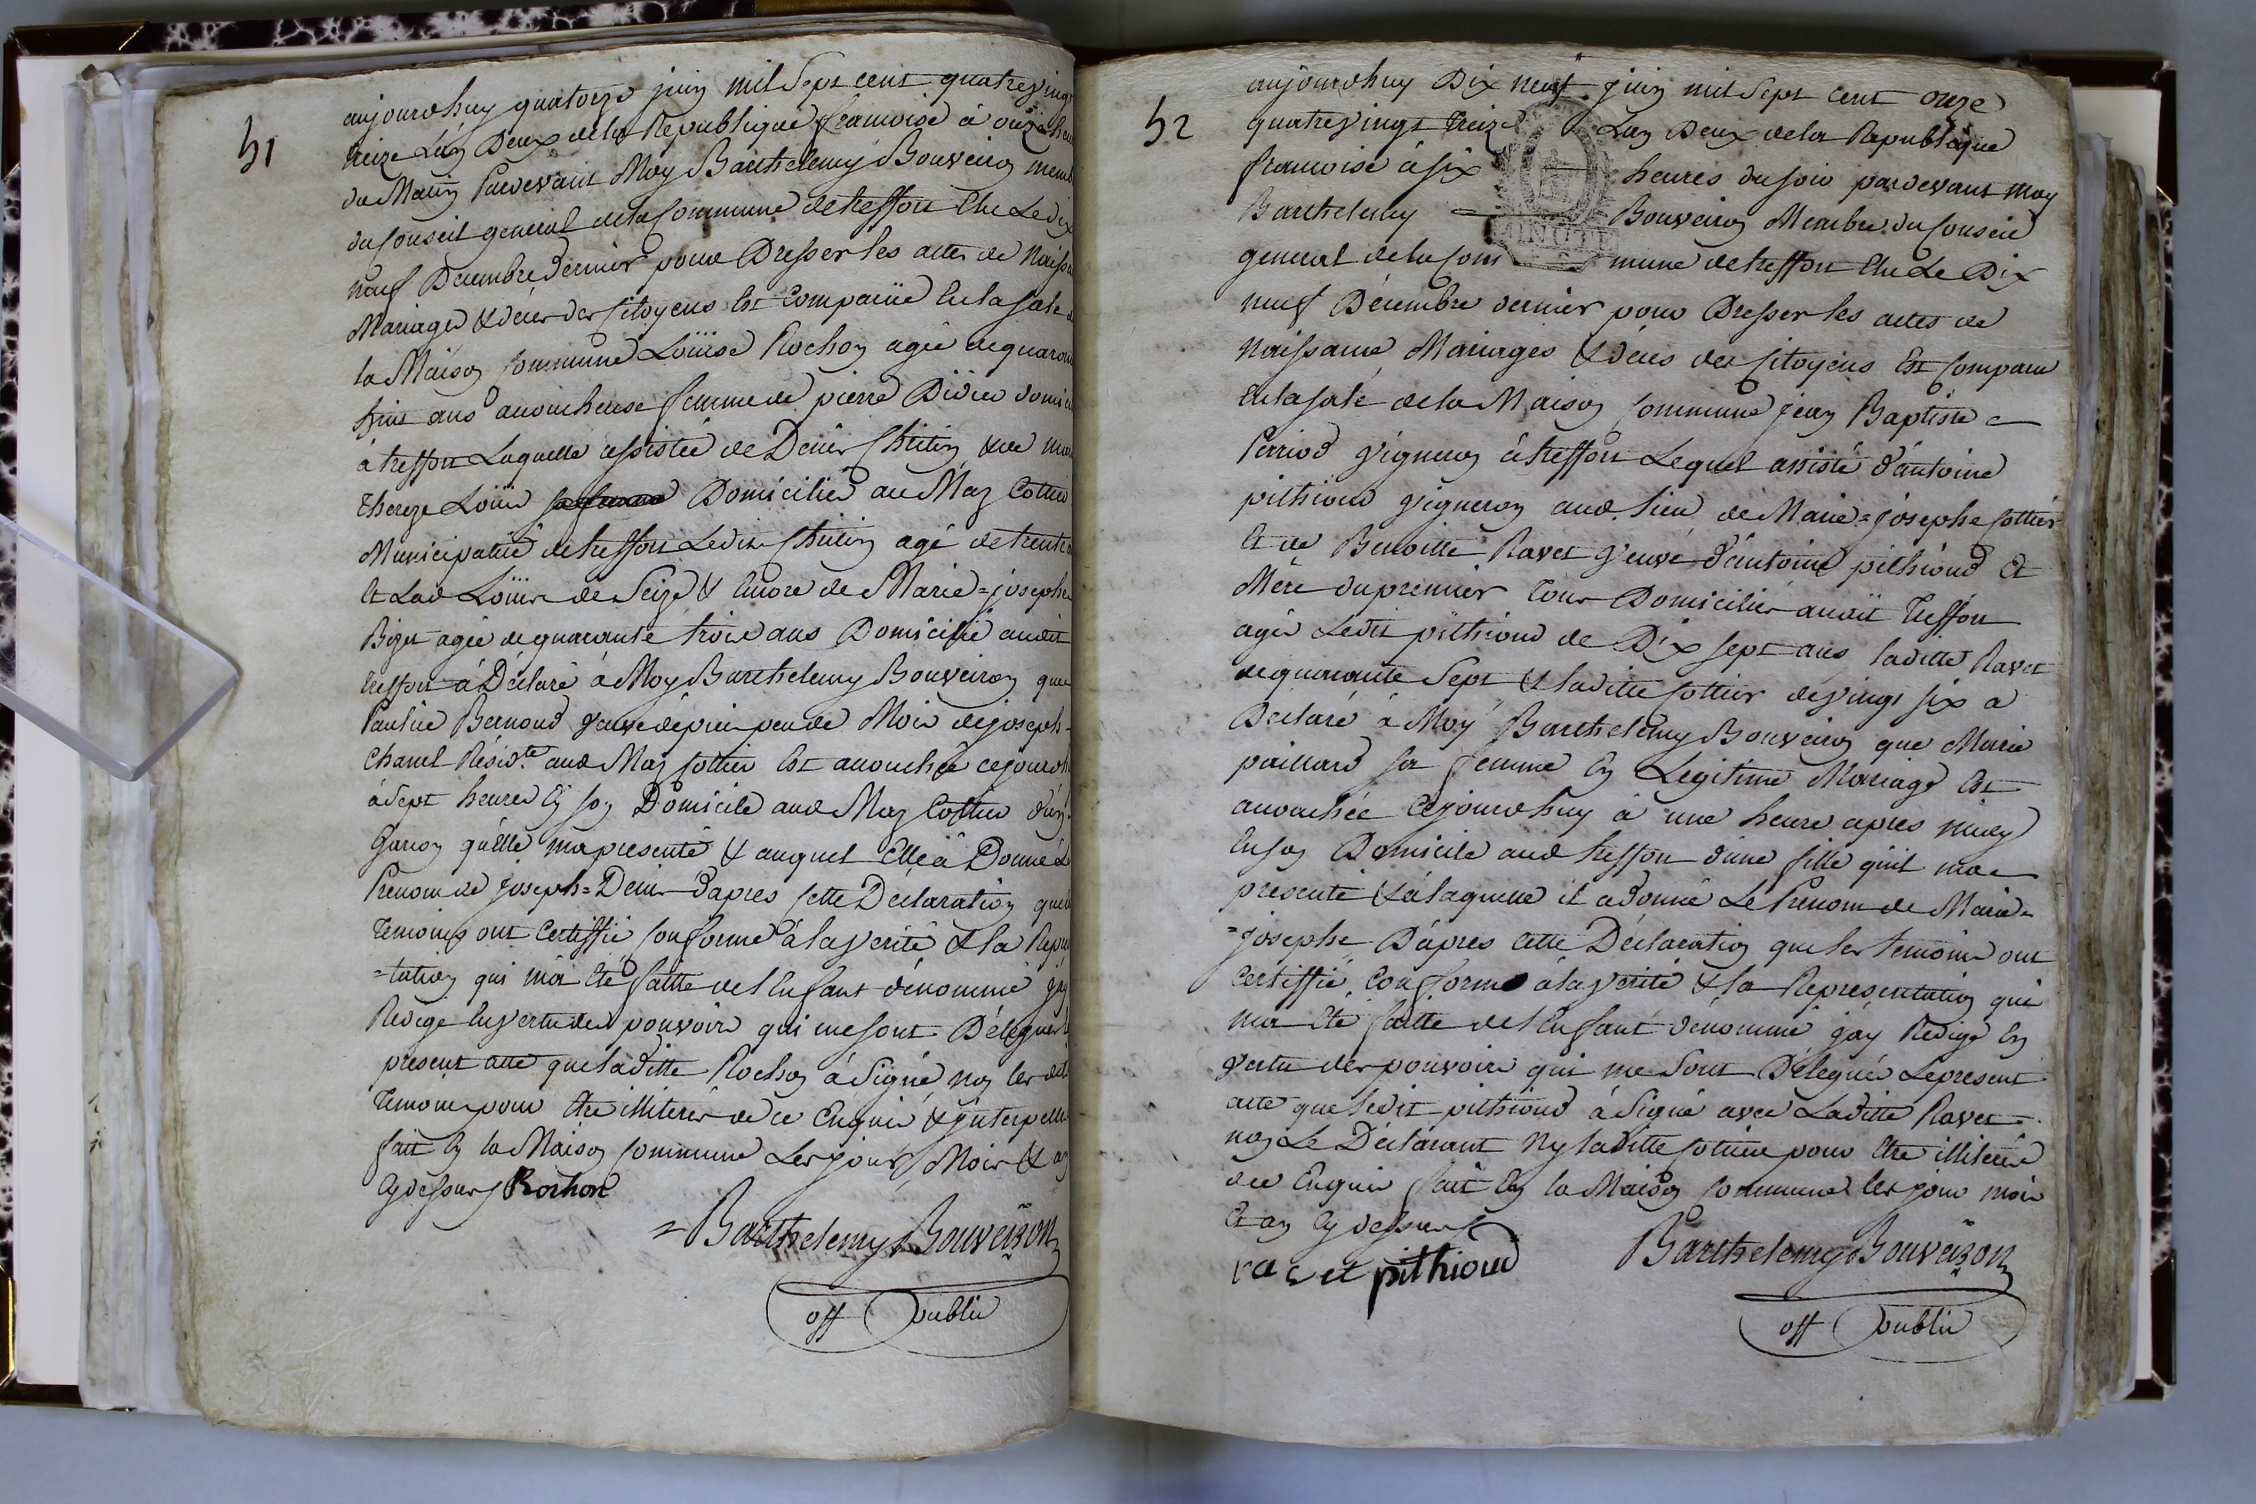 51
aujourdhuy quatorze juin mil Sept cent quatrevingt
treize L'an Deux dela Republique francoise à onze heu
du Matin Pardevant Moy Barthelemy Bouveiron mem
du Conseil general dela Commune de treffort Elu Le dix
neuf Decembre dernier pour Dresser les actes de Naissa
Mariages & décès des Citoyens Est Comparüe En la sale de
la Maison Commune Loüise Rochon agée de quarante
ans accoucheuse femme de pierre Didier domici
à treffort Laquelle assistée de Denis Chitin & de
Thereze Loüis Domiciliés au Maz Cottier
Municipalité de treffort Ledit Chitin agé de trente
Et Lad. Loüis de Seize & Encore de Marie=josephe
Bizet agée de quarante trois ans Domicilié audit
treffort à Déclaré à Moy Barthelemy Bouveiron que
Pauline Bernoud veuve dépuis peu de Mois de joseph
Chanel Résid.te aud Maz Cottier Est accouchée cejourdh
à Sept heures En son Domicile aud Maz Cottier d'un
Garcon qu'elle ma presenté & auquel Elle à Donné Le
Prenom de joseph=Denis D'apres Cette Déclaration que les
Temoins ont Certiffié Conforme à la verité & la Repre
=tation qui m'a Eté faitte del Enfant dénommé j'ay
Redigé En vertu des pouvoirs qui me sont Délégués le
present acte que laditte Rochon à Signé non les dits
Temoins pour Etre illiterés de ce Enquis & interpellé
fait En la Maison Commune Les jour, Mois & an
Cy dessus Rochon
= Barthelemy Bouveiron
off public
52
aujourdhuy Dix neuf juin mil Sept cent onze
quatrevingt treize L'an Deux dela Republique
francoise à six heures du soir pardevant moy
Barthelemy = Bouveiron Membre du Conseil
general dela Com mune de treffort Elu Le Dix
MINUTE
neuf Décembre dernier pour Dresser les actes de
Naissance Mariages & décès des Citoyens Est Comparu
En la sale dela Maison Commune jean Baptiste
Perriod vigneron à treffort Lequel assisté d'antoine
pithioud vigneron aud. lieu de Marie=josephe Cottier
Et de Benoitte Ravet veuve d'antoine pithioud Et
Mère du premier Tous Domiciliés audit Treffort
agés Ledit pithioud de Dix sept ans laditte Ravet
de quarante Sept & laditte Cottier de vingt six a
Declaré à Moy Barthelemy Bouveiron que Marie
paillard sa femme En Legitime Mariage Est
accouchée Cejourdhuy à une heure apres midy
En son Domicile aud treffort d'une fille quil ma
presenté & à laquelle il a donné Le Prenom de Marie=
=josephe D'apres cette Déclaration que les temoins ont
Certiffié Conforme à la verité & la Representation qui
m'a Eté faitte del Enfant dénommé j'ay Redigé En
vertu des pouvoirs qui me Sont Délégués Lepresent
acte que ledit pithioud à Signé avec Laditte Ravet
non Le Déclarant Ny laditte Cottier pour Etre illiterés
de ce Enquis fait En la Maison Commune les jour mois
Et an Cy dessus
ravet pithioud Barthelemy Bouveiron
off public